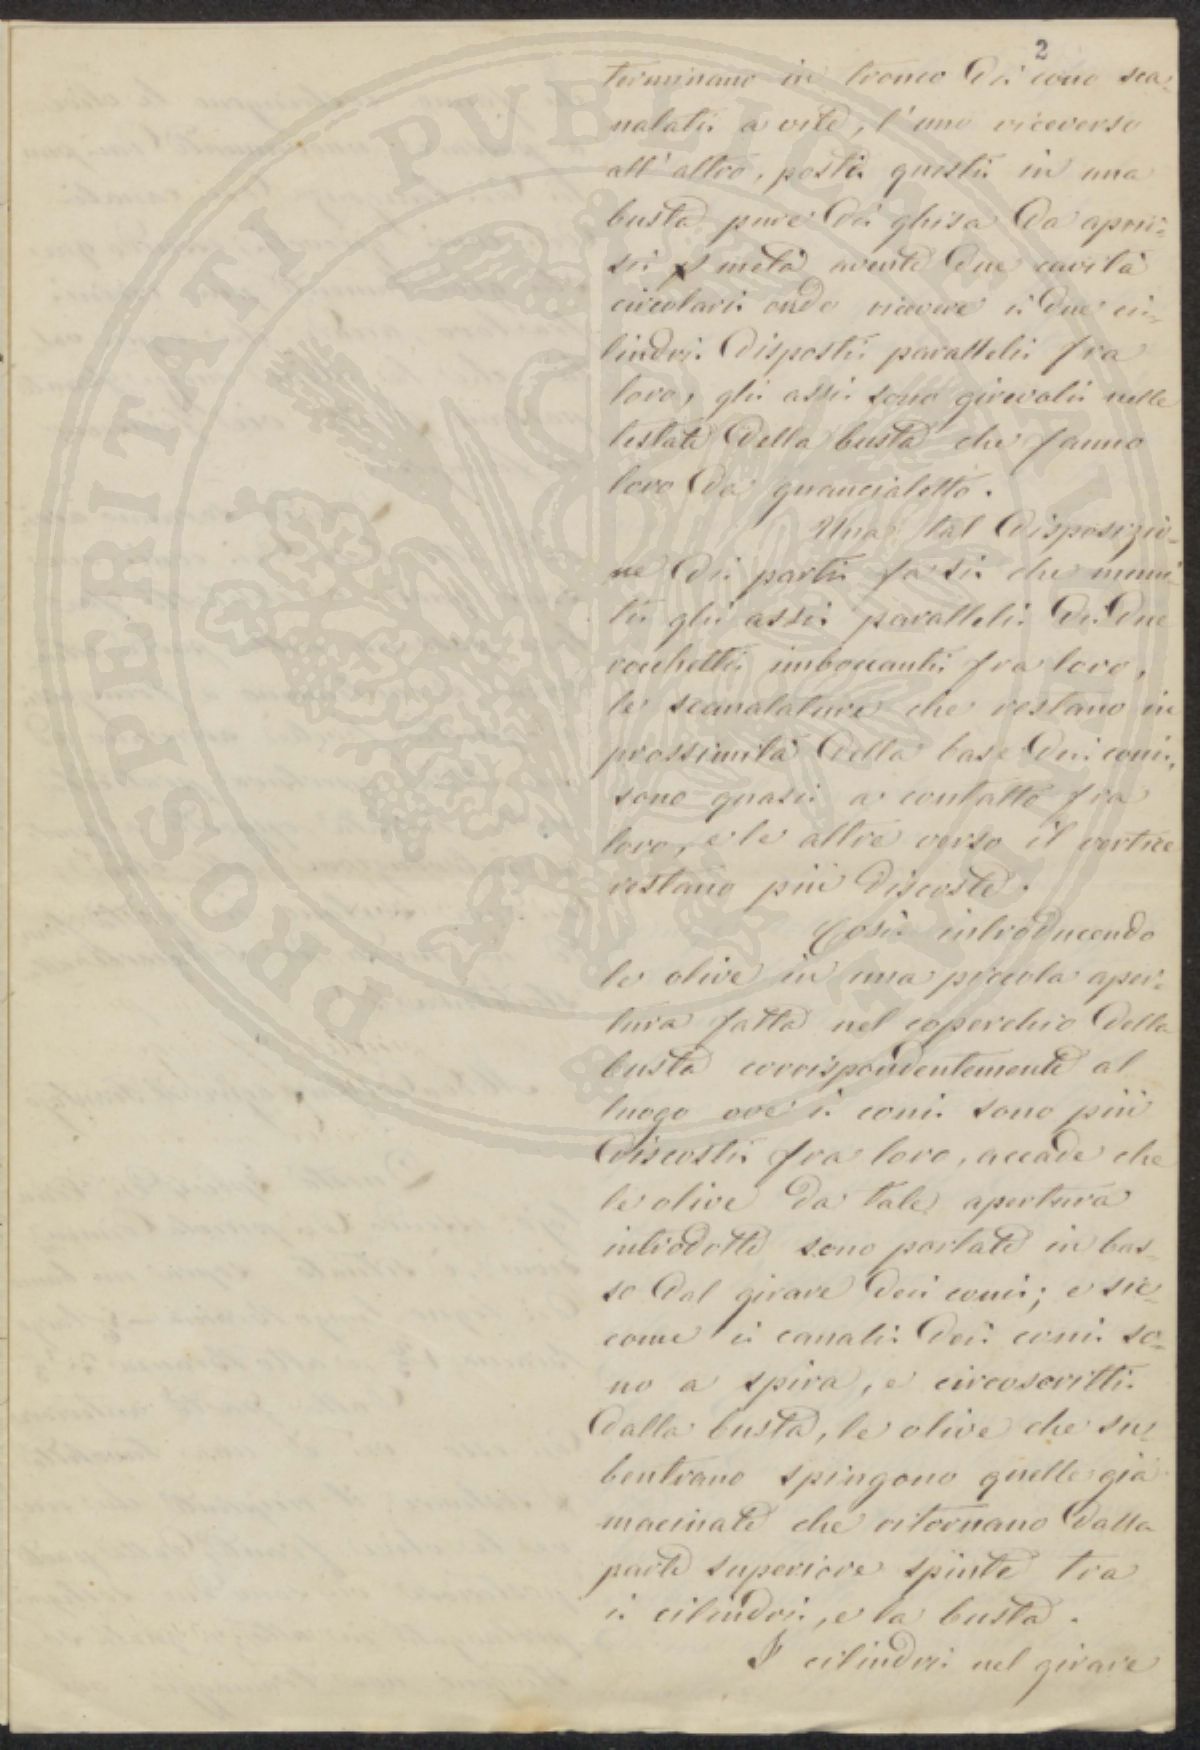 2
terminano in tronco di cono sca-
nalati a vite, l'uno viceverso
all'altro, posti questi in una
busta pure di ghisa da aprir-
si p metà avente due cavità
circolari onde ricevere i due ci-
lindri disposti paralleli fra
loro, gli assi sono girevoli nelle
testate della busta che fanno
loro da guancialetto.
Una tal disposizio-
ne di parti fa si che muni-
ti gli assi paralleli di due
rocchetti imboccanti fra loro,
le scanalature che restano in
prossimità della base dei coni,
sono quasi a contatto fra
loro, e le altre verso il vertice
restano più discoste.
Così introducendo
le olive in una piccola aper-
tura fatta nel coperchio della
busta corrispondentemente al
luogo ove i coni sono più
discosti fra loro, accade che
le olive da tale apertura
introdotte sono portate in bas-
so dal girare dei coni; e sic-
come i canali dei coni so-
no a spira, e circoscritti
dalla busta, le olive che su-
bentrano spingono quelle già
macinate che ritornano dalla
parte superiore spinte tra
i cilindri, e la busta.
I cilindri nel girare
PROSPERITATI PVBLICAE